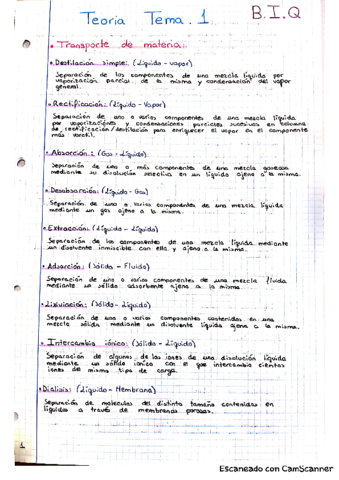 Teoría Tema. 1 B.I.Q
• Transporte de materia:
• Destilación simple: (Líquido - vapor)
Separación de los componentes de una mezcla líquida por
vaporización parcial de la misma y condensación del vapor
general.
• Rectificación: (Líquido - Vapor)
Separación de uno o varios componentes de una mezcla líquida
por vaporizaciones y condensaciones parciales sucesivas en columna
de rectificación/destilación para enriquecer el vapor en el componente
más volátil.
• Absorción: (Gas - Líquido)
Separación de uno o más componentes de una mezcla gaseosa
mediante su disolución selectiva en un líquido ajeno a la misma.
• Desabsorción: (Líquido - Gas)
Separación de uno o varios componentes de una mezcla líquida
mediante un gas ajeno a la misma.
• Extracción: (Líquido - Líquido)
Separación de los componentes de una mezcla líquida mediante
un disolvente inmiscible con ella y ajeno a la misma.
• Adsorción: (Sólido - Fluido)
Separación de uno o varios componentes de una mezcla fluida
mediante un sólido adsorbente ajeno a la misma.
• Lixiviación: (Sólido - Líquido)
Separación de uno o varios componentes contenidos en una
mezcla sólida mediante un disolvente líquido ajeno a la misma.
• Intercambio iónico: (Sólido - Líquido)
Separación de alguno de los iones de una disolución líquida
mediante un sólido iónico con el que intercambia ciertos
iones del mismo tipo de carga.
• Diálisis: (Líquido - Membrana)
Separación de moléculas de distinto tamaño contenidas en
líquidos a través de membranas porosas.
1
Escaneado con CamScanner